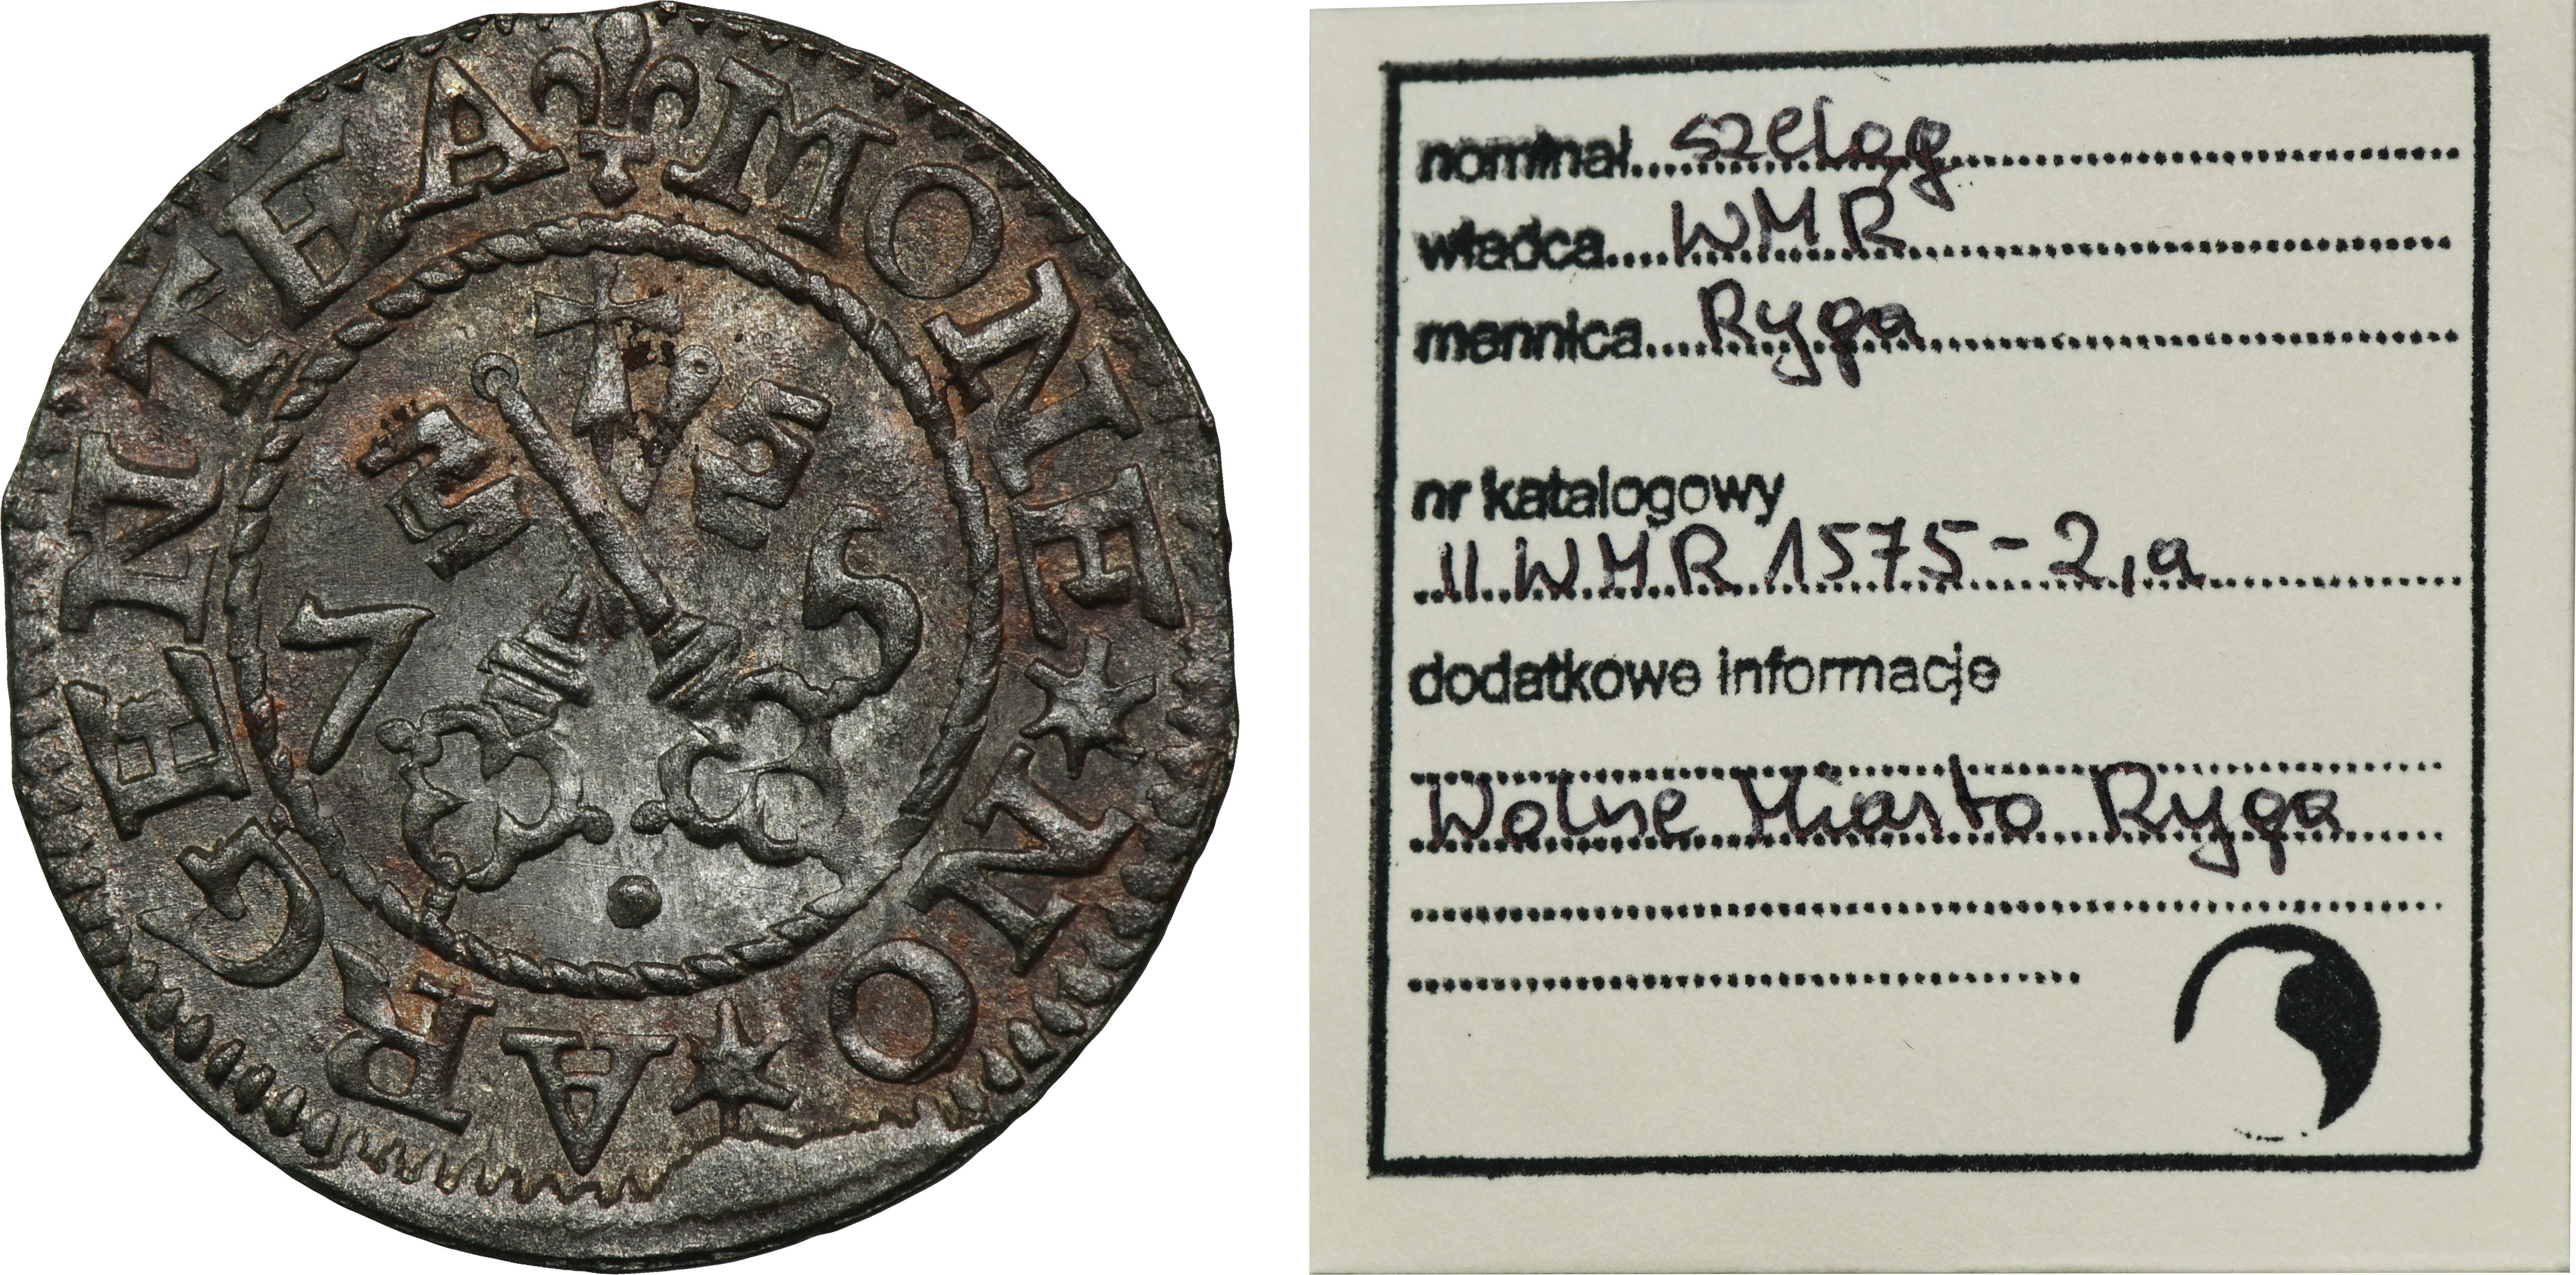 MONE★NO★ARGENTEA
7 5
nominał szeląg
władca WMR
mennica Ryga
nr katalogowy
II WMR 1575-2,a
dodatkowe informacje
Wolne Miasto Ryga